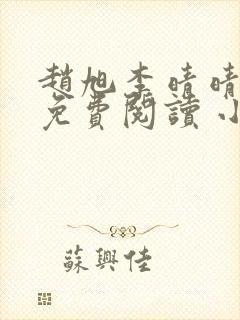 趙旭李晴晴
免費閱讀小
蘇興佳